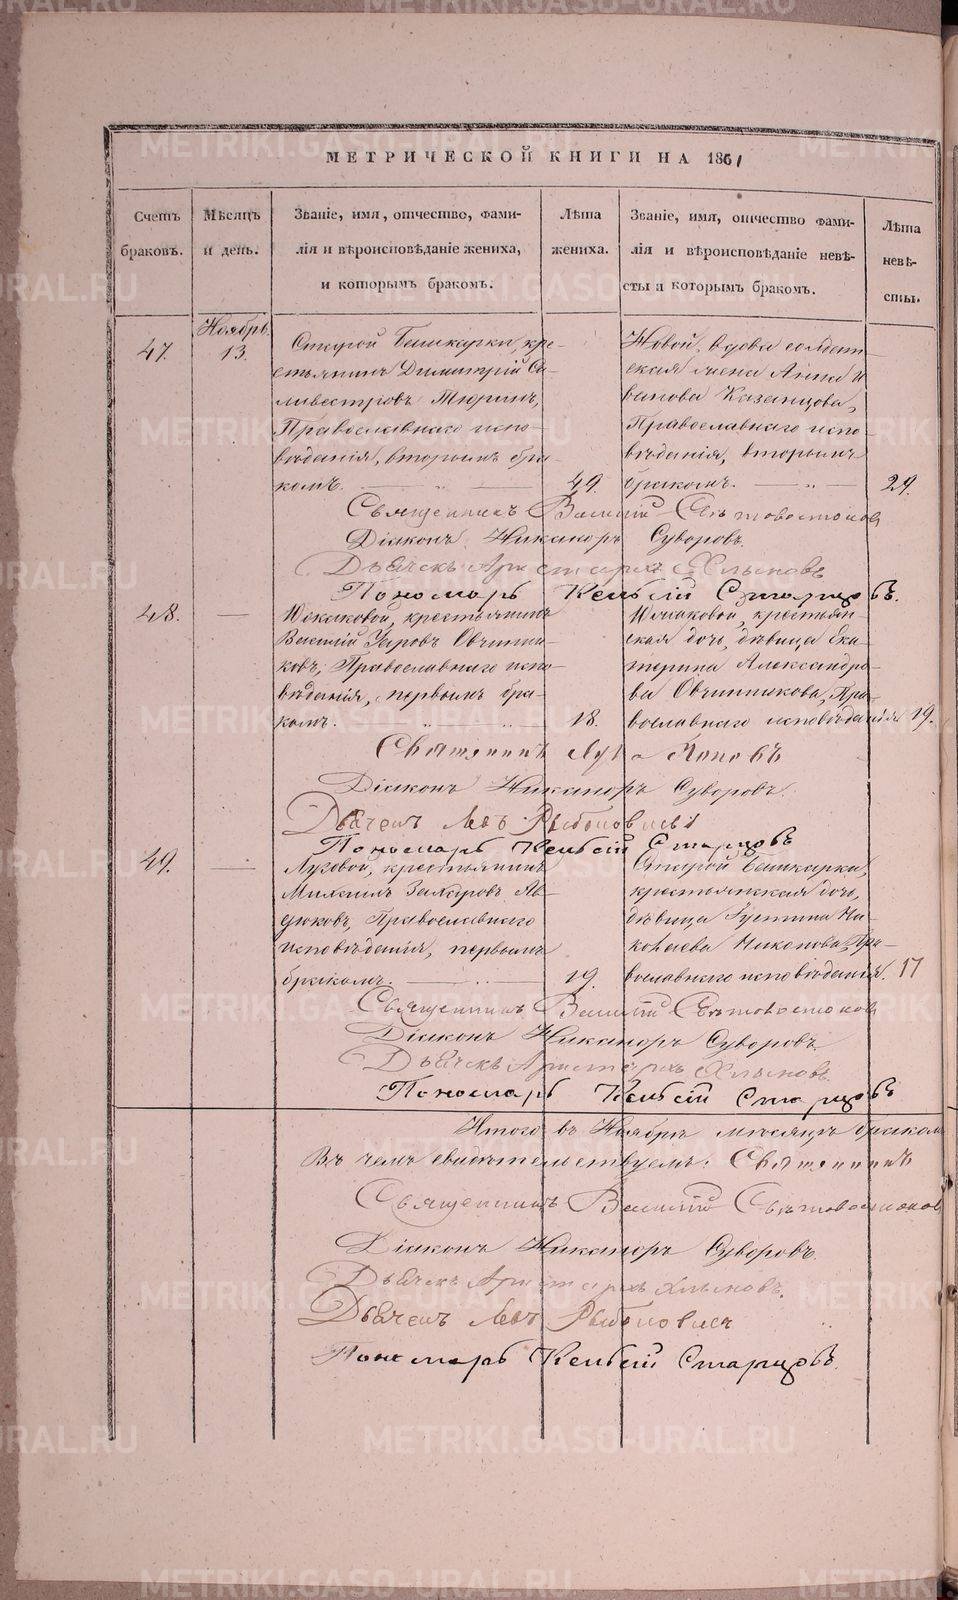 МЕТРИЧЕСКОЙ КНИГИ НА 1861
Счетъ браковъ.
Мѣсяцъ и день.
Званіе, имя, отчество, фами-
лія и вѣроисповѣданіе жениха,
и которымъ бракомъ.
Лѣта жениха.
Званіе, имя, отчество фами-
лія и вѣроисповѣданіе невѣ-
сты и которымъ бракомъ.
Лѣта невѣ-
сты.
47.
Ноябрь
13.
Старой Башкарки, кре-
стьянинъ Димитрій Се-
ливестровъ Тюринъ,
Православнаго испо-
вѣданія, вторымъ бра-
комъ.
49.
Новой, вдова солдат-
ская жена Анна И
ванова Казанцова,
Православнаго испо
вѣданія, вторымъ
бракомъ.
29.
Священникъ Василій Свѣтовостоковъ
Діаконъ Никаноръ Суворовъ.
Дьячекъ Аристархъ Хлыновъ
Пономарь Старцовъ.
48.
крестьянинъ
Василій Овчинни-
ковъ, Православнаго испо-
вѣданія, первымъ бра-
комъ.
18.
крестьян-
ская дочь, дѣвица Ека-
терина Александро-
ва Овчинникова, Пра-
вославнаго исповѣданія
19.
Священникъ Лука Поповъ
Діаконъ Никаноръ Суворовъ.
Дьячекъ Левъ
Пономарь Старцовъ
49.
Луговой, крестьянинъ
Михаилъ Захаровъ Ав-
дюковъ, Православнаго
исповѣданія, первымъ
бракомъ.
19.
Старой Башкарки,
крестьянская дочь,
дѣвица Устинья Ни-
колаева Никонова, Пра-
вославнаго исповѣданія.
17
Священникъ Василій Свѣтовостоковъ
Діаконъ Никаноръ Суворовъ.
Дьячекъ Аристархъ Хлыновъ.
Пономарь Старцовъ
Итого въ Ноябрѣ мѣсяцѣ браком
Въ чемъ свидѣтельствуемъ: Священникъ
Священникъ Василій Свѣтовостоковъ
Діаконъ Никаноръ Суворовъ.
Дьячекъ Аристархъ Хлыновъ.
Дьячекъ Левъ
Пономарь Старцовъ.
METRIKI.GASO-URAL.RU